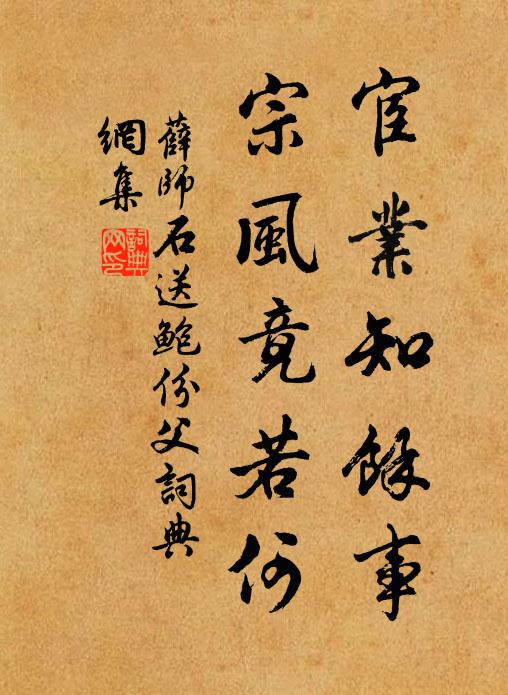 宦業知餘事
宗風竟若何
薛師石送鮑份父詞典
網集
詞典
网印